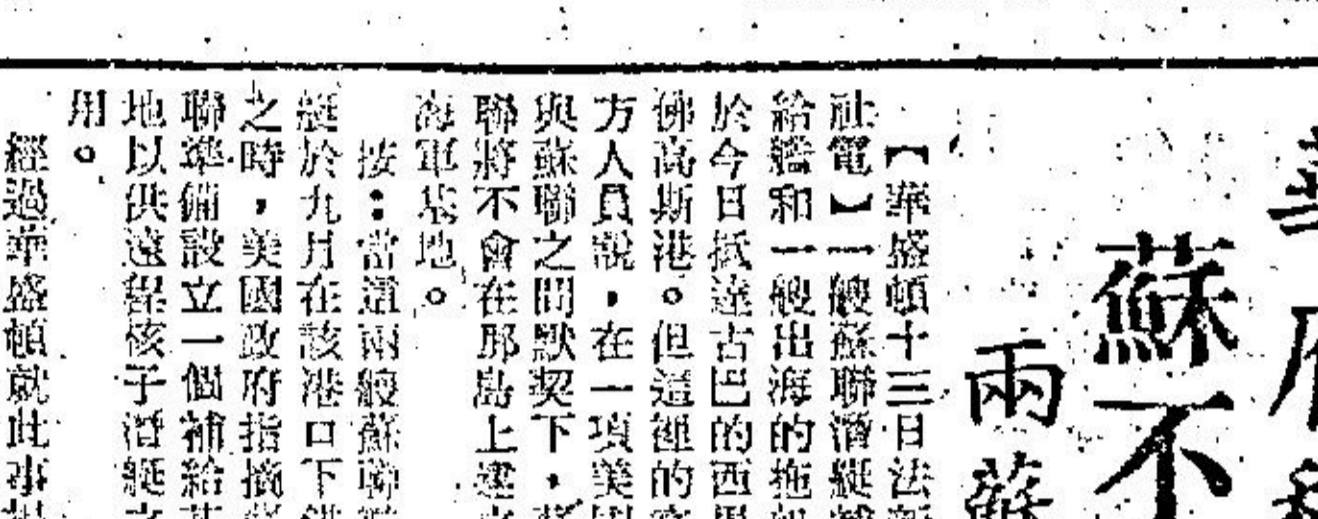 蘇不
兩蘇
【華盛頓十三日法新
社電】一艘蘇聯潛艇補
給艦和一艘出海的拖船
於今日抵達古巴的西恩
佛高斯港。但這裡的官
方人員說，在一項美國
與蘇聯之間默契下，蘇
聯將不會在那島上建立
海軍基地。
按：當這兩艘蘇聯
艇於九月在該港口下錨
之時，美國政府指摘蘇
聯準備設立一個補給基
地以供遠程核子潛艇之
用。
經過華盛頓就此事提